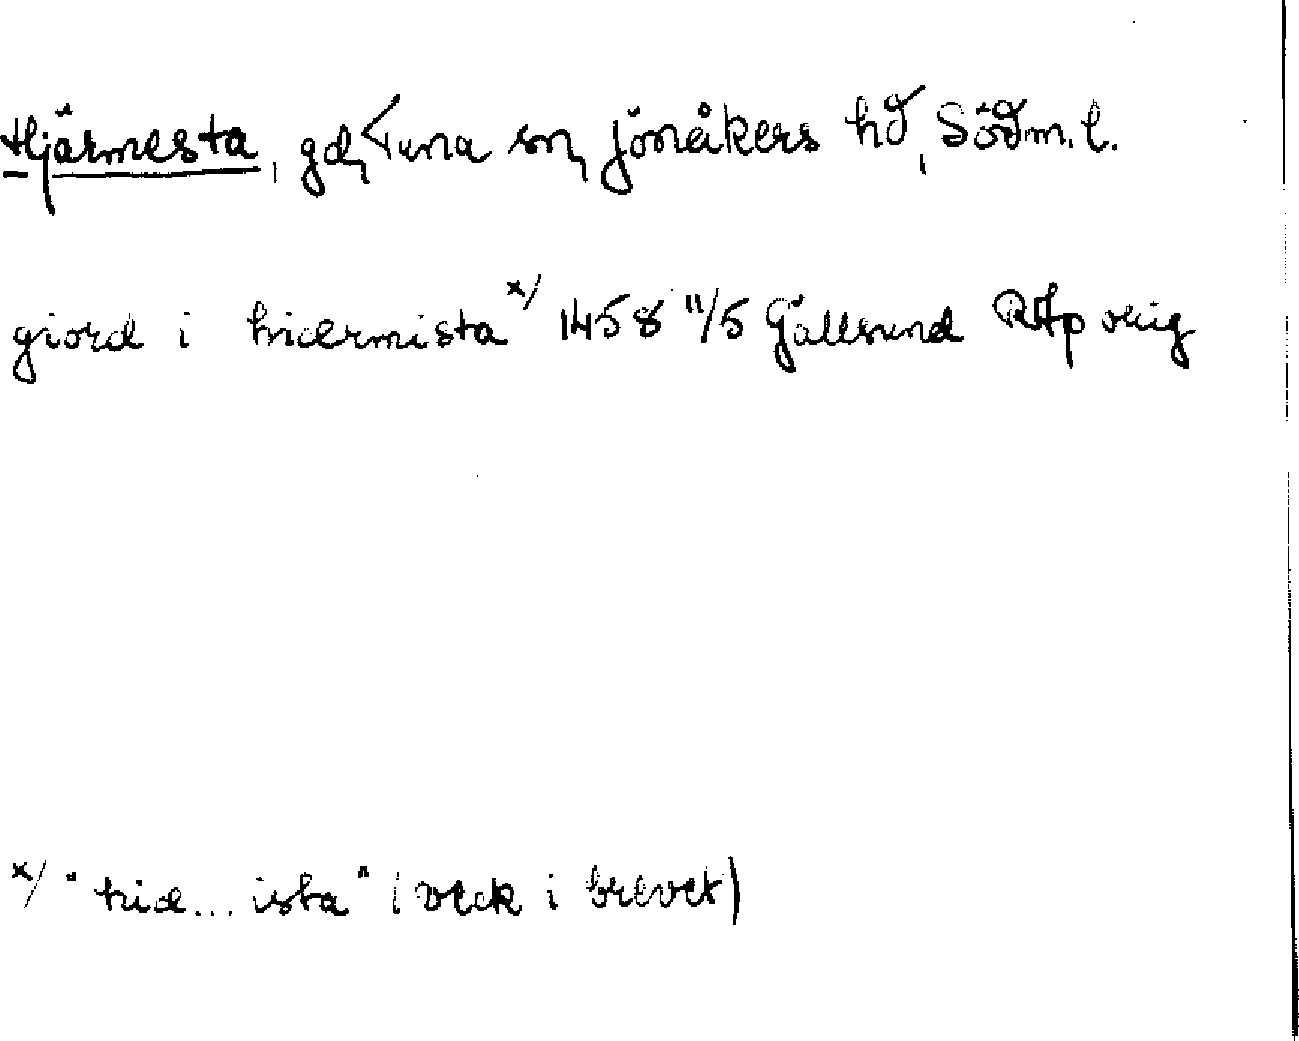 Hjärmesta, gd, Tuna sn, Jönåkers hd, Södm. l.
giord i hiærmista x/ 1458 11/5 Gällsund RAp orig
x/ "hiæ... ista" (veck i brevet)